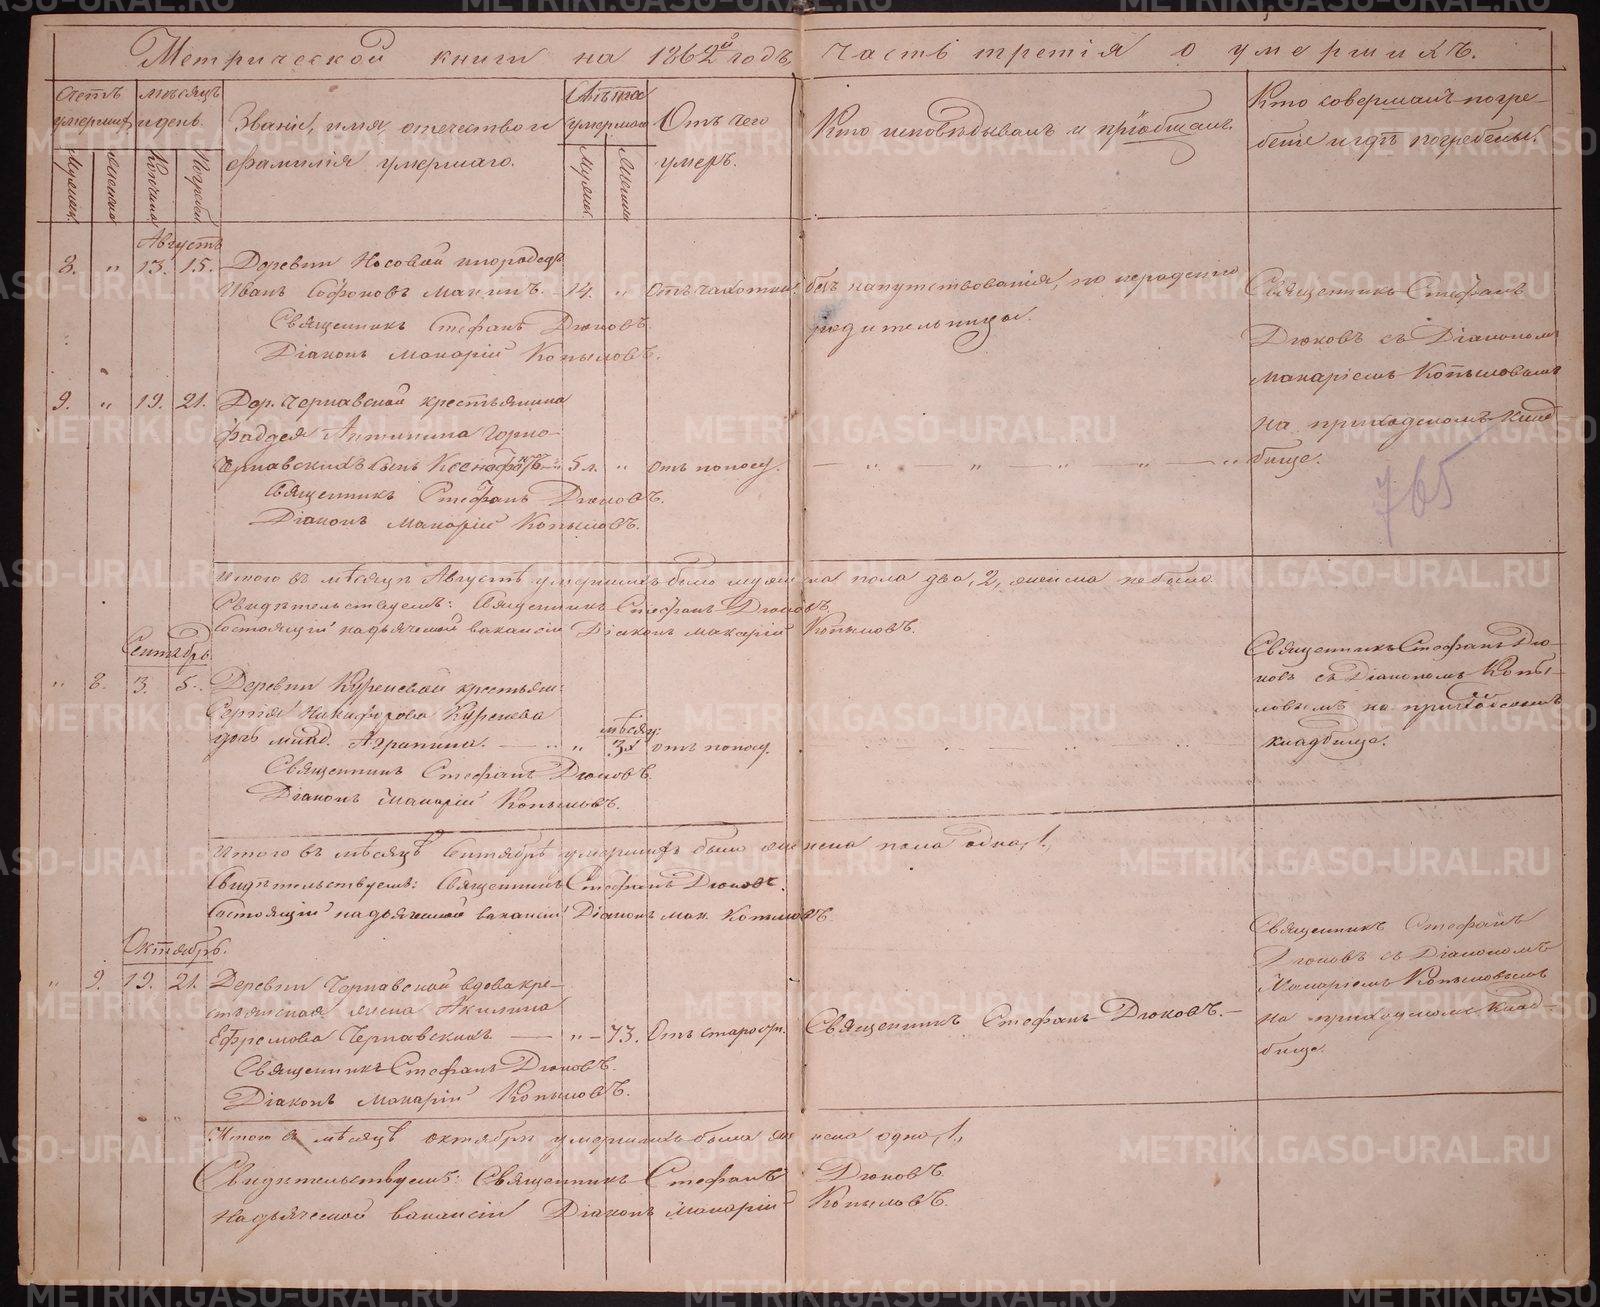 Метрической книги на 1862й годъ, часть третія о умершихъ.
Счетъ умершихъ
Мужеск.
Женска
Мѣсяцъ и день.
Кончины
Погребе.
Званіе, имя, отечество и
фамилія умершаго.
Лѣта
умершаго
Мужеск.
Женска
Отъ чего
умеръ.
Кто исповѣдывалъ и пріобщалъ.
Кто совершалъ погре-
бете и гдѣ погребены.
Августъ
8. " 13. 15. Деревни Носовой инородецъ
Иванъ Софоновъ Макинъ. 14. " Отъ чахотки. безъ напутствованія, по нерадению
родительницы.
Священникъ Стефанъ Дюковъ.
Діаконъ Макарій Копыловъ.
Священникъ Стефанъ
Дюковъ съ Діакономъ
Макаріемъ Копыловымъ
на приходскомъ клад
бище.
9. " 19. 21. Дер. Чернавской крестьянина
Фаддея Антипина
Чернавскихъ сынъ Ксенофонтъ 5 л. " отъ поносу.
Священникъ Стефанъ Дюковъ.
Діаконъ Макарій Копыловъ.
765
Итого въ мѣсяцѣ Августѣ умершихъ было мужеска пола два, 2, женска небыло.
Свидѣтельствуемъ: Священникъ Стефанъ Дюковъ.
Состоящій на дьяческой вакансіи Діаконъ Макарій Копыловъ.
Сентябрь.
" 8. 3. 5. Деревни Куреневой крестьян:
Сергія Никифорова Куренева
дочь млад. Агрипина. " мѣсяц: 3х отъ поносу.
Священникъ Стефанъ Дюковъ.
Діаконъ Макарій Копыловъ.
Священникъ Стефанъ Дю-
ковъ съ Діакономъ Копы-
ловымъ на приходскомъ
кладбище.
Итого въ мѣсяцѣ Сентябрѣ умершихъ было женска пола одна, 1,
Свидѣтельствуемъ: Священникъ Стефанъ Дюковъ.
Состоящій на дьяческой вакансіи Діаконъ Мак. Копыловъ.
Октябрь.
" 9. 19. 21. Деревни Чернавской вдова кре-
стьянская жена Акилина
Ефремова Чернавскихъ " 73. Отъ старости. Священникъ Стефанъ Дюковъ.
Священникъ Стефанъ Дюковъ.
Діаконъ Макарій Копыловъ.
Священникъ Стефанъ
Дюковъ съ Діакономъ
Макаріемъ Копыловымъ
на приходскомъ клад-
бище.
Итого въ мѣсяцѣ октябри умершихъ была женска одна, 1,
Свидѣтельствуемъ: Священникъ Стефанъ Дюковъ.
На дьяческой вакансіи Діаконъ Макарій Копыловъ.
METRIKI.GASO-URAL.RU